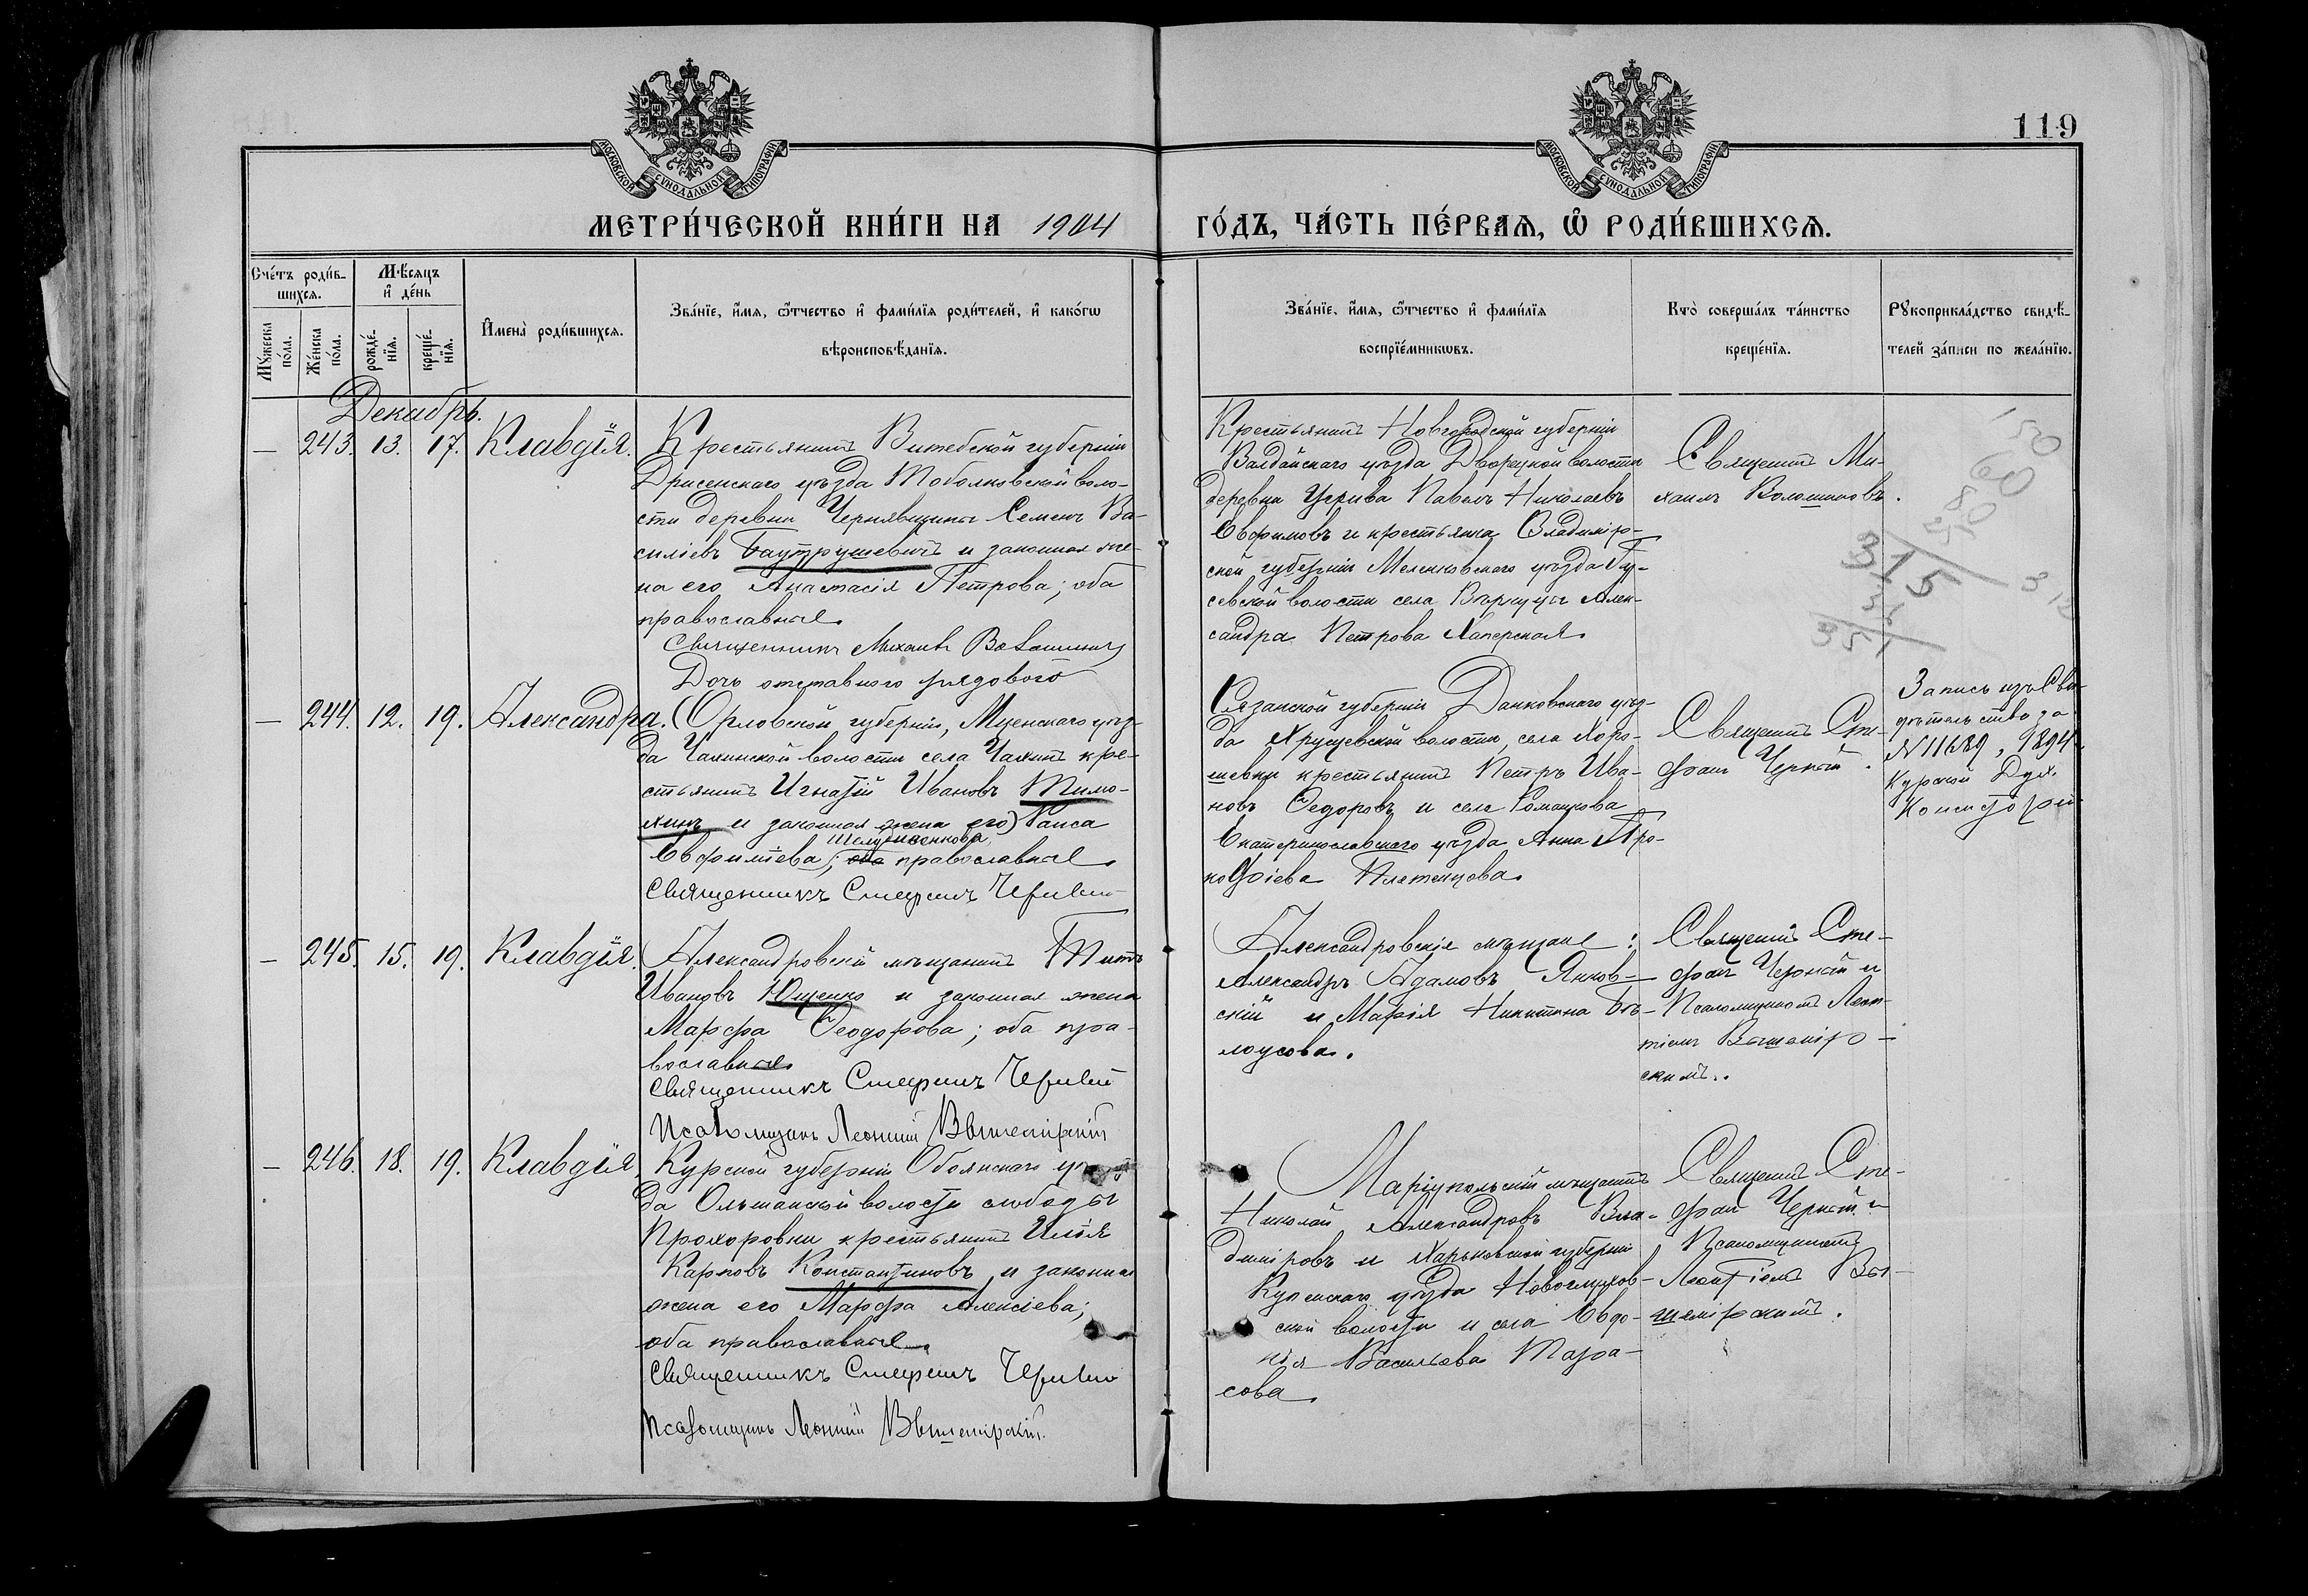 119
МОСКОВСКОЙ СѴНОДАЛЬНОЙ ТИПОГРАФІИ
МОСКОВСКОЙ СѴНОДАЛЬНОЙ ТИПОГРАФІИ
МЕТРИ́ЧЕСКОЙ КНИ́ГИ НА 1904
ГО́ДЪ, ЧА́СТЬ ПЕ́РВАѦ, Ѽ РОДИ́ВШИХСѦ.
Сче́тъ роди́в-
шихсѧ.
Мꙋжеска
по́ла.
Же́нска
по́ла.
Мѣ́сѧцъ
и҆ де́нь
рожде́-
нїѧ.
креще́-
нїѧ.
И҆мена̀ роди́вшихсѧ.
Зва́нїе, и҆́мѧ, ѻ҆́тчество и҆ фами́лїѧ роди́телей, и҆ како́гѡ
вѣроисповѣ́данїѧ.
Зва́нїе, и҆́мѧ, ѻ҆́тчество и҆ фами́лїѧ
воспрїе́мникѡвъ.
Кто̀ соверша́лъ та́инство
креще́нїѧ.
Рꙋкоприкла́дство свидѣ́-
телей за́писи по жела́нїю.
Декабрь.
— 243. 13. 17. Клавдія.
Крестьянинъ Витебской губерніи
Дрисенскаго уѣзда Тоболковской воло-
сти деревни Чернявщины Семенъ Ва-
силіевъ Баутрушевичъ и законная же-
на его Анастасія Петрова; оба
православные.
Священникъ Михаилъ Волошиновъ
Крестьянинъ Новгородской губерніи
Валдайскаго уѣзда Дворецкой волости
деревни Усрива Павелъ Николаевъ
Евфимовъ и крестьянка Владимір-
ской губерніи Меленковскаго уѣзда Гу-
севской волости села Алек-
сандра Петрова Хаперская.
Священникъ Ми-
хаилъ Волошиновъ.
150
60
80
25
315
36
351
Дочь отставного рядового
— 244. 12. 19. Александра.
(Орловской губерніи, Мценскаго уѣз-
да Чахинской волости села Чахинъ кре-
стьянинъ Игнатій Ивановъ Тимо-
хинъ и законная жена его) Раиса
Евфиміева; оба православные
Священникъ Стефанъ Черный
Рязанской губерніи Данковскаго уѣз-
да Хрущевской волости, села Хоро-
шевки крестьянинъ Петръ Ива-
новъ Ѳедоровъ и села Романкова
Екатеринославскаго уѣзда Анна Про-
кофіева Плетенцова.
Священникъ Сте-
фанъ Черный.
Запись изъ Сви-
дѣтельства за
N 11689, 1894
Курской Дух.
Консисторіи
— 245. 15. 19. Клавдія.
Александровскій мѣщанинъ Титъ
Ивановъ Ющенко и законная жена
Марфа Ѳеодорова; оба пра-
вославные.
Священникъ Стефанъ Черный
Псаломщикъ Леонтій Вышемірскій
Александровскіе мѣщане:
Александръ Адамовъ Янков-
скій и Марія Никитина Бѣ-
лоусова.
Священникъ Сте-
фанъ Черный и
Псаломщикомъ Леон-
тіемъ Вышемір-
скимъ.
— 246. 18. 19. Клавдія
Курской губерніи Обоянскаго уѣз-
да Ольшанской волости слободы
Прохоровки крестьянинъ Илія
Карповъ Константиновъ и законная
жена его Марфа Алексіева;
оба православные.
Священникъ Стефанъ Черный
Псаломщикъ Леонтій Вышемірскій.
Маріупольскій мѣщанинъ
Николай Александровъ Вла-
диміровъ и Харьковской губерніи
Купенскаго уѣзда Новоглухов-
ской волости и села Евдо-
кія Васильева Тара-
сова
Священникъ Сте-
фанъ Черный и
Псаломщикомъ
Леонтіемъ Вы-
шемірскимъ.